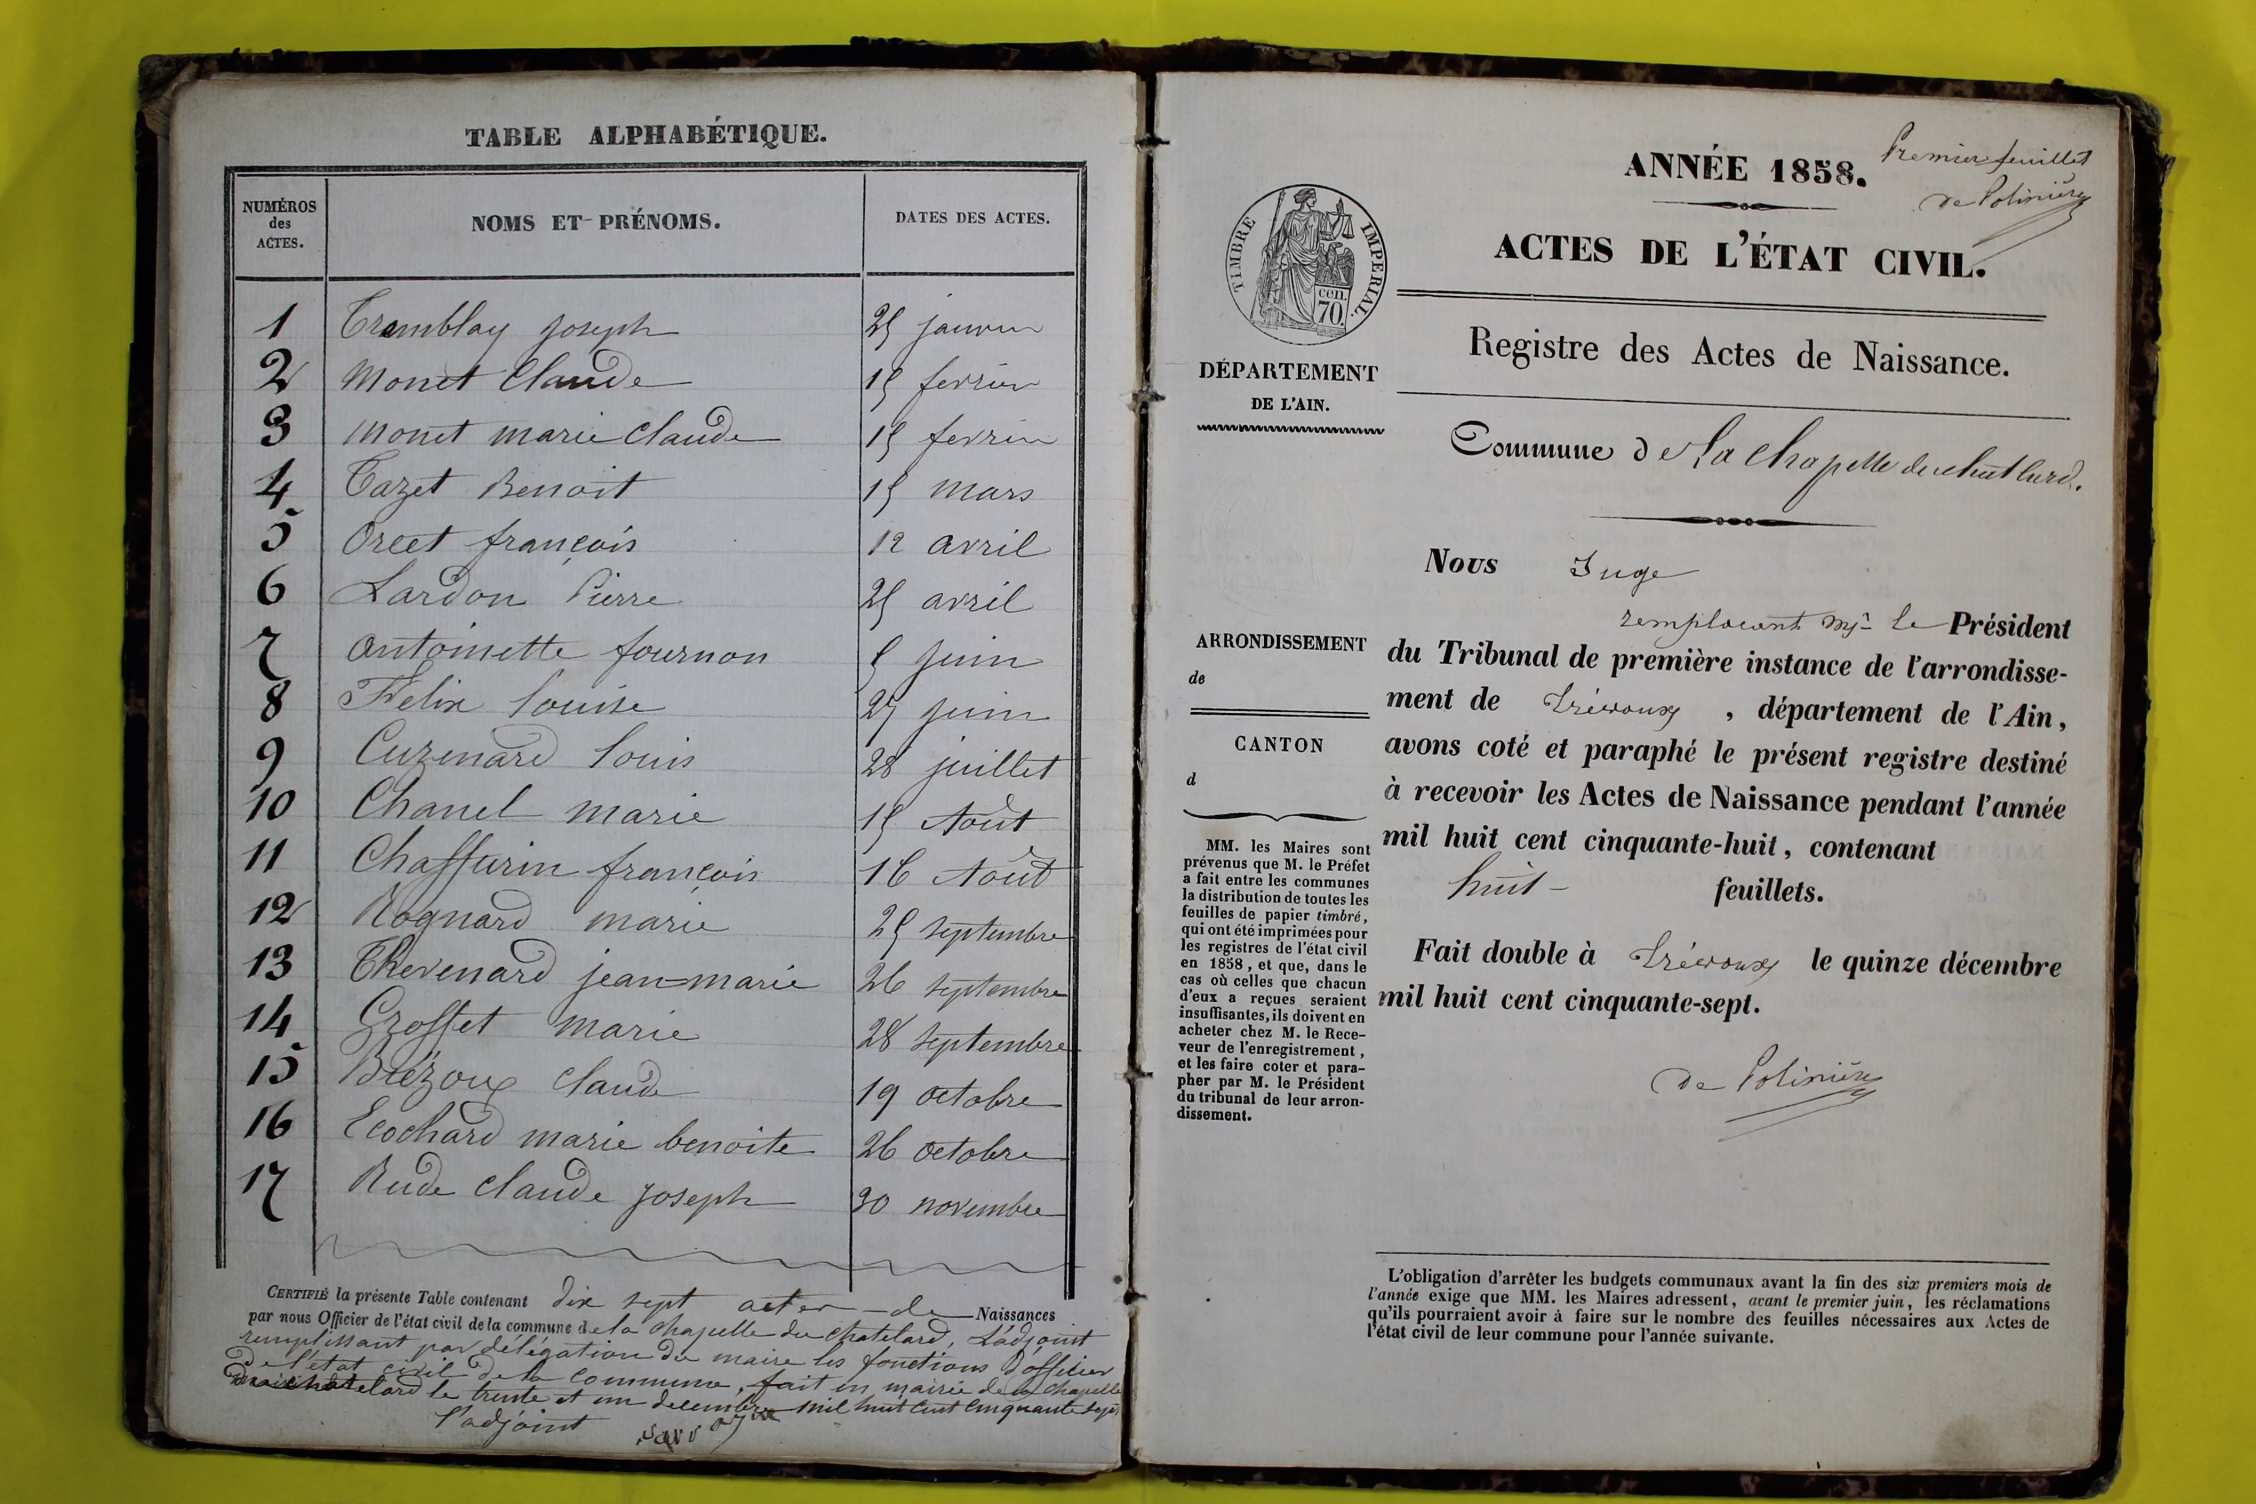 TABLE ALPHABÉTIQUE.
NUMÉROS des ACTES. NOMS ET PRÉNOMS. DATES DES ACTES.
1 Tramblay joseph 25 janvier
2 Monet Claude 15 fevrier
3 Monet marie Claude 15 fevrier
4 Tazet Benoit 15 mars
5 Orcet françois 12 avril
6 Lardon Pierre 25 avril
7 Antoinette fournon 5 juin
8 Felix Louise 27 juin
9 Cuzenard Louis 28 juillet
10 Chanel marie 15 Août
11 Chaffurin françois 16 Août
12 Rognard marie 25 septembre
13 Thevenard jean marie 26 septembre
14 Groffet marie 28 septembre
15 Brézoux Claude 19 octobre
16 Ecochard marie benoite 26 octobre
17 Rude Claude joseph 30 novembre
CERTIFIÉ la présente Table contenant dix sept actes de Naissances
par nous Officier de l'état civil de la commune de la chapelle du chatelard, L'adjoint
remplissant par délégation du maire les fonctions d'officier
de l'état civil de la commune, fait en mairie de la chapelle
du chatelard le trente et un decembre mil huit cent cinquante sept
l'adjoint
ANNÉE 1858.
Premier feuillet
de Polinière
ACTES DE L'ÉTAT CIVIL.
TIMBRE IMPERIAL.
cen. 70.
Registre des Actes de Naissance.
DÉPARTEMENT
DE L'AIN.
Commune de La Chapelle du chatelard.
Nous Juge
remplacant Mr le Président
du Tribunal de première instance de l'arrondisse-
ment de Trévoux, département de l'Ain,
avons coté et paraphé le présent registre destiné
à recevoir les Actes de Naissance pendant l'année
mil huit cent cinquante-huit, contenant
huit feuillets.
Fait double à Trévoux le quinze décembre
mil huit cent cinquante-sept.
de Polinière
ARRONDISSEMENT
de
CANTON
d
MM. les Maires sont
prévenus que M. le Préfet
a fait entre les communes
la distribution de toutes les
feuilles de papier timbré,
qui ont été imprimées pour
les registres de l'état civil
en 1858, et que, dans le
cas où celles que chacun
d'eux a reçues seraient
insuffisantes, ils doivent en
acheter chez M. le Rece-
veur de l'enregistrement,
et les faire coter et para-
pher par M. le Président
du tribunal de leur arron-
dissement.
L'obligation d'arrêter les budgets communaux avant la fin des six premiers mois de
l'année exige que MM. les Maires adressent, avant le premier juin, les réclamations
qu'ils pourraient avoir à faire sur le nombre des feuilles nécessaires aux Actes de
l'état civil de leur commune pour l'année suivante.